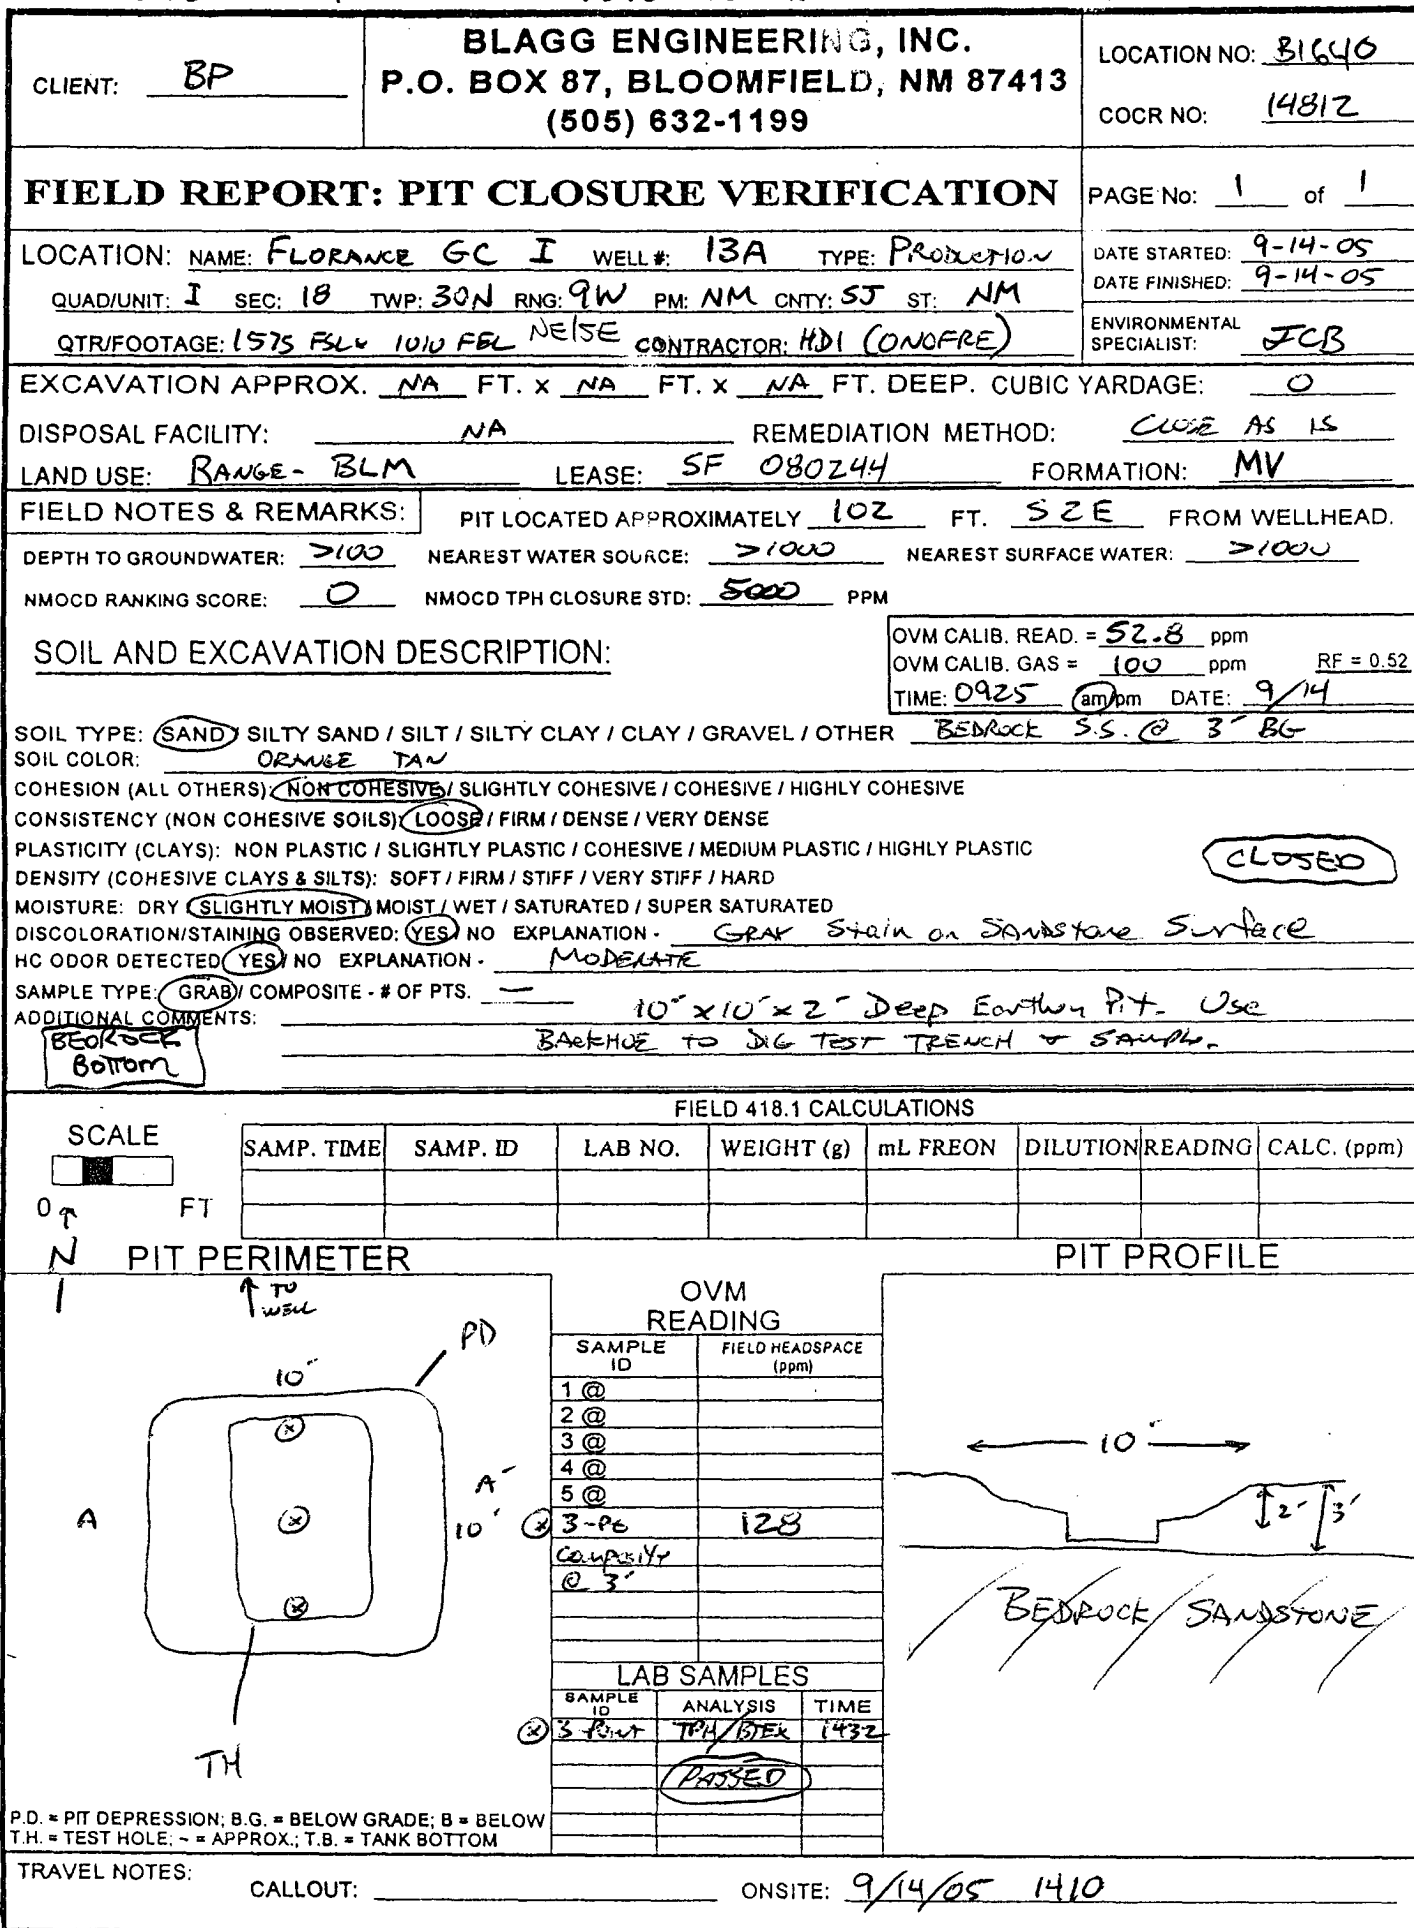 BLAGG ENGINEERING, INC.
P.O. BOX 87, BLOOMFIELD, NM 87413
(505) 632-1199
CLIENT: BP
LOCATION NO: B1640
COCR NO: 14812
FIELD REPORT: PIT CLOSURE VERIFICATION
PAGE No: 1 of 1
LOCATION: NAME: FLORANCE GC I WELL #: 13A TYPE: PRODUCTION
DATE STARTED: 9-14-05
DATE FINISHED: 9-14-05
QUAD/UNIT: I SEC: 18 TWP: 30N RNG: 9W PM: NM CNTY: SJ ST: NM
QTR/FOOTAGE: 1575 FSL 1010 FEL NE/SE CONTRACTOR: HDI (ONOFRE)
ENVIRONMENTAL SPECIALIST: JCB
EXCAVATION APPROX. NA FT. x NA FT. x NA FT. DEEP. CUBIC YARDAGE: 0
DISPOSAL FACILITY: NA REMEDIATION METHOD: CLOSE AS IS
LAND USE: RANGE - BLM LEASE: SF 080244 FORMATION: MV
FIELD NOTES & REMARKS: PIT LOCATED APPROXIMATELY 102 FT. S2E FROM WELLHEAD.
DEPTH TO GROUNDWATER: >100 NEAREST WATER SOURCE: >1000 NEAREST SURFACE WATER: >1000
NMOCD RANKING SCORE: 0 NMOCD TPH CLOSURE STD: 5000 PPM
SOIL AND EXCAVATION DESCRIPTION:
OVM CALIB. READ. = 52.8 ppm
OVM CALIB. GAS = 100 ppm RF = 0.52
TIME: 0925 am/pm DATE: 9/14
SOIL TYPE: SAND / SILTY SAND / SILT / SILTY CLAY / CLAY / GRAVEL / OTHER BEDROCK S.S. @ 3' BG
SOIL COLOR: ORANGE TAN
COHESION (ALL OTHERS): NON COHESIVE / SLIGHTLY COHESIVE / COHESIVE / HIGHLY COHESIVE
CONSISTENCY (NON COHESIVE SOILS): LOOSE / FIRM / DENSE / VERY DENSE
PLASTICITY (CLAYS): NON PLASTIC / SLIGHTLY PLASTIC / COHESIVE / MEDIUM PLASTIC / HIGHLY PLASTIC
DENSITY (COHESIVE CLAYS & SILTS): SOFT / FIRM / STIFF / VERY STIFF / HARD
CLOSED
MOISTURE: DRY / SLIGHTLY MOIST / MOIST / WET / SATURATED / SUPER SATURATED
DISCOLORATION/STAINING OBSERVED: YES / NO EXPLANATION - GRAY Stain on SANDStone Surface
HC ODOR DETECTED: YES / NO EXPLANATION - MODERATE
SAMPLE TYPE: GRAB / COMPOSITE - # OF PTS. —
ADDITIONAL COMMENTS: 10' x 10' x 2' Deep Earthen Pit. Use
BACKHOE TO DIG TEST TRENCH & SAMPLE.
BEDROCK
BOTTOM
FIELD 418.1 CALCULATIONS
SCALE
0 FT
SAMP. TIME SAMP. ID LAB NO. WEIGHT (g) mL FREON DILUTION READING CALC. (ppm)
N
PIT PERIMETER
TO WELL
PD
10'
A A'
10'
TH
P.D. = PIT DEPRESSION; B.G. = BELOW GRADE; B = BELOW
T.H. = TEST HOLE; ~ = APPROX.; T.B. = TANK BOTTOM
OVM
READING
SAMPLE ID FIELD HEADSPACE (ppm)
1 @
2 @
3 @
4 @
5 @
3-Pt 128
Composite
@ 3'
LAB SAMPLES
SAMPLE ID ANALYSIS TIME
3 Point TPH/BTEX 1432
PASSED
PIT PROFILE
10'
2' 3'
BEDROCK SANDSTONE
TRAVEL NOTES:
CALLOUT: ONSITE: 9/14/05 1410